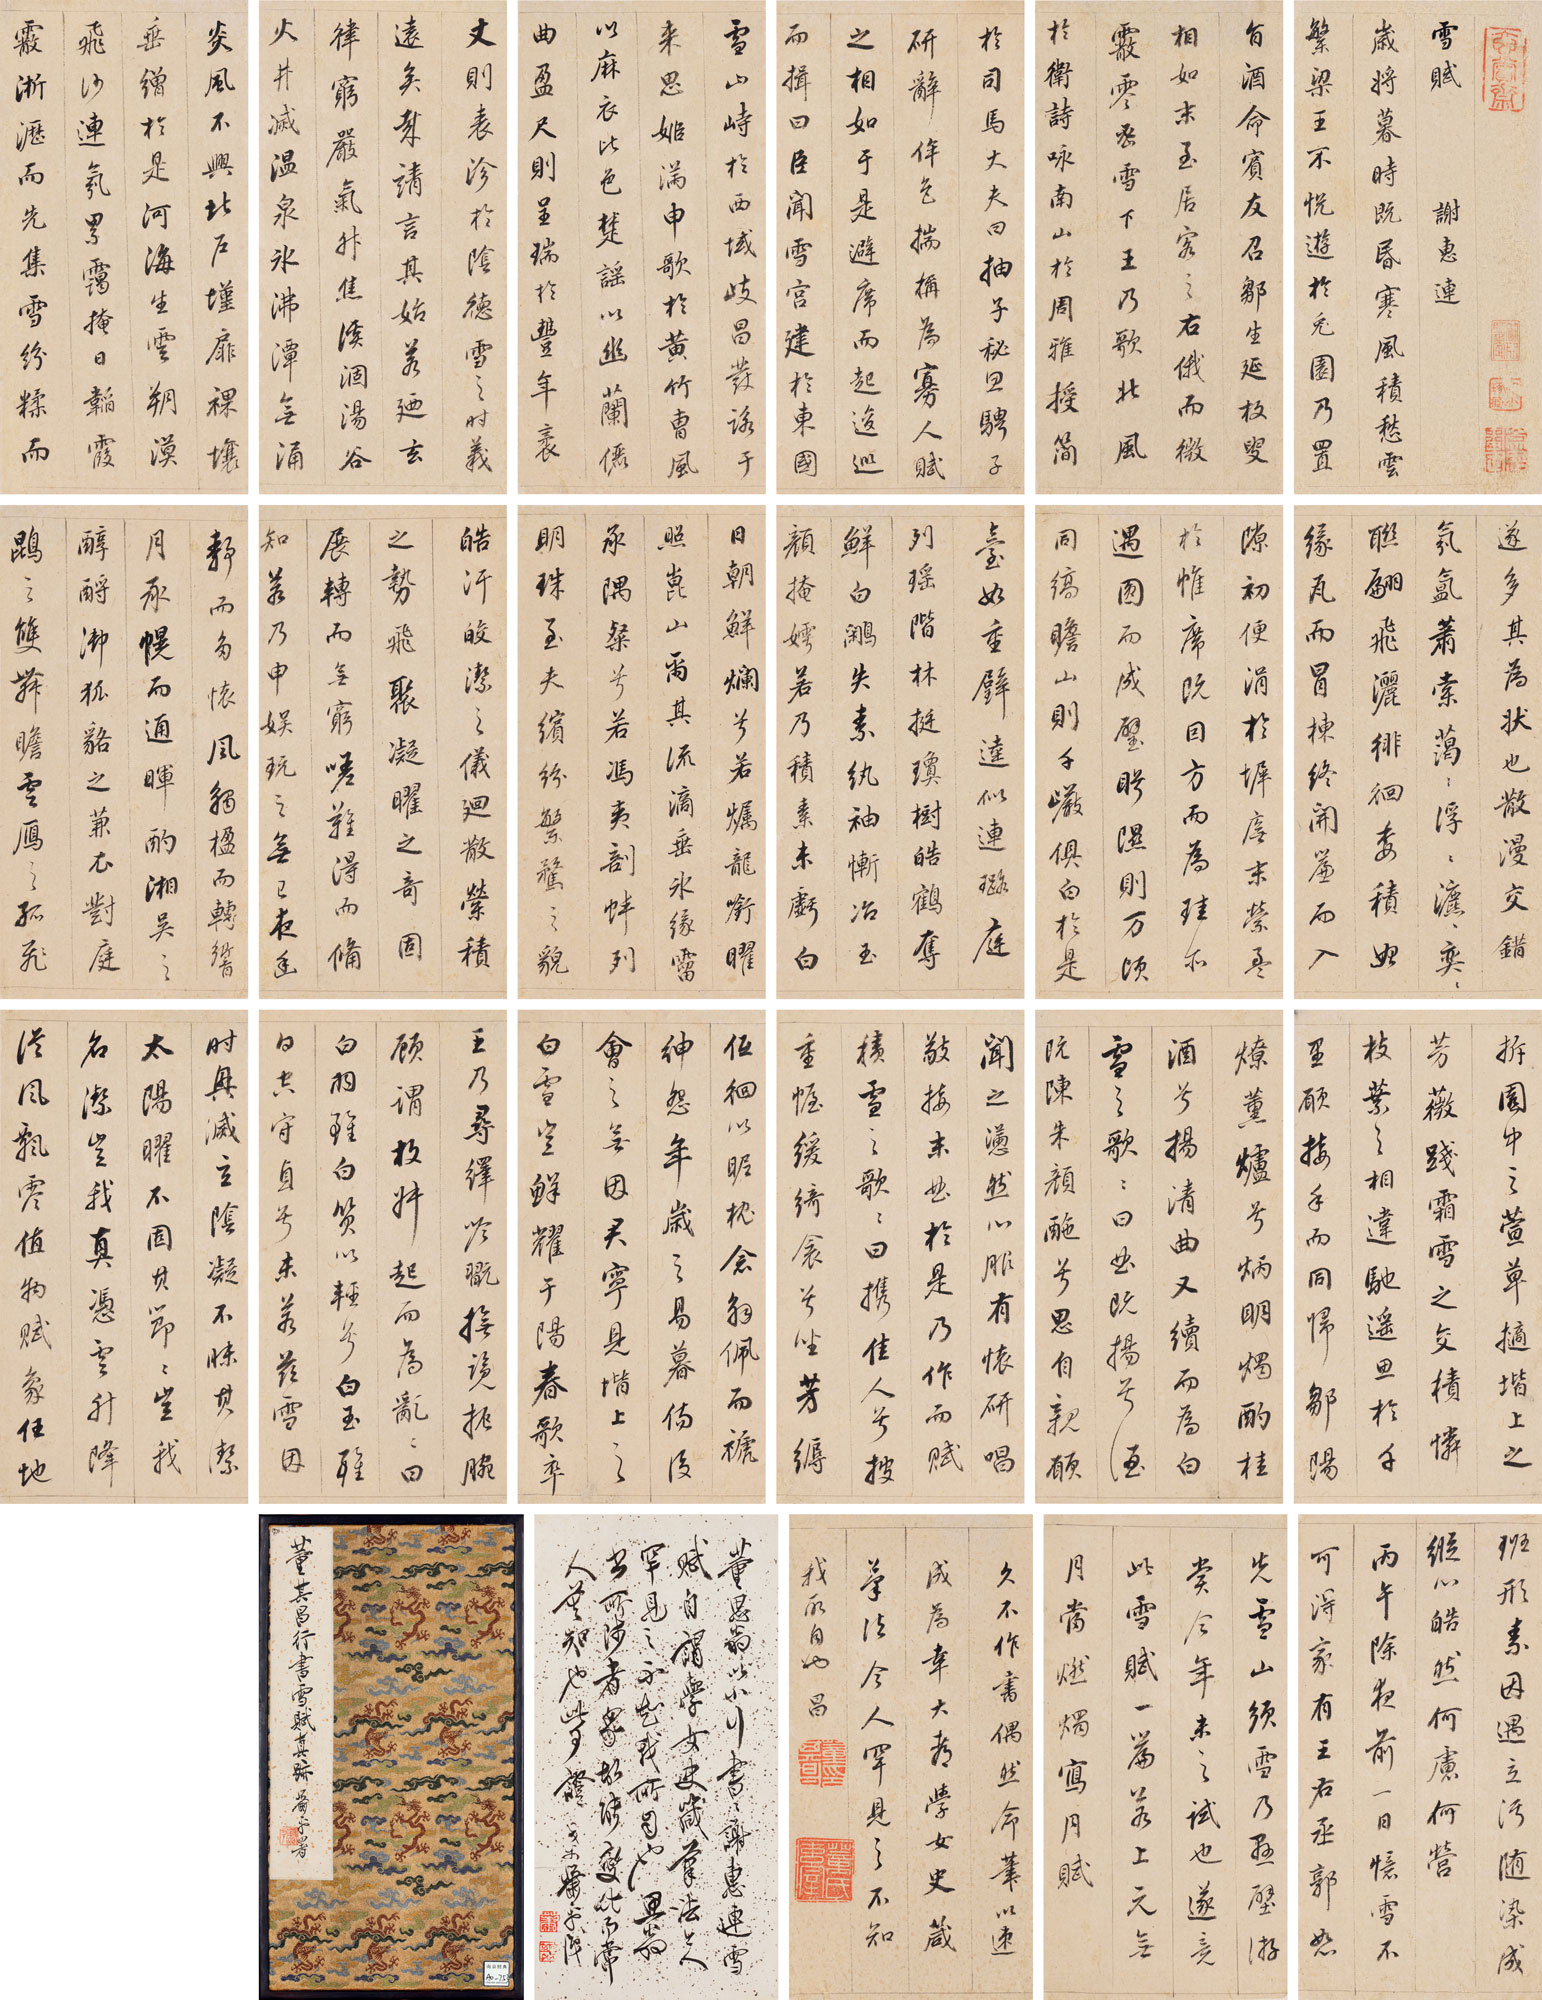 雪賦　謝惠連
歲將暮時既昏寒風積愁雲
繁梁王不悅遊於兔園乃置
旨酒命賓友召鄒生延枚叟
相如末至居客之右俄而微
霰零密雪下王乃歌北風
於衛詩咏南山於周雅授簡
於司馬大夫曰抽子秘思騁子
研辭侔色揣稱為寡人賦
之相如于是避席而起逡巡
而揖曰臣聞雪宮建於東國
雪山峙於西域岐昌發詠于
来思姬滿申歌於黃竹曹風
以麻衣比色楚謠以幽蘭儷
曲盈尺則呈瑞於豐年袤
丈則表沴於陰德雪之時義
遠矣哉請言其始若廼玄
律窮嚴氣升焦溪涸湯谷
火井滅温泉冰沸潭無涌
炎風不興北戶墐扉裸壤
垂繒於是河海生雲朔漠
飛沙連氛累靄掩日韜霞
霰淅瀝而先集雪紛糅而
遂多其為狀也散漫交錯
氛氳蕭索藹〻浮〻瀌〻奕〻
聯翩飛灑徘徊委積始
緣瓦而冒棟終開簾而入
隙初便涓於墀廡末縈盈
於帷席既因方而為珪亦
遇圓而成璧眄隰則万頃
同縞瞻山則千巖俱白於是
臺如重璧逵似連璐庭
列瑶階林挺瓊樹皓鶴奪
鮮白鷳失素紈袖慚冶玉
顏掩嫮若乃積素未虧白
日朝鮮爛兮若燭龍銜曜
照崑山爾其流滴垂冰緣霤
承隅粲兮若馮夷剖蚌列
明珠至夫繽紛繁騖之貌
皓汗皎潔之儀廻散縈積
之勢飛聚凝曜之奇固
展轉而無窮嗟難得而備
知若乃申娛玩之無已夜幽
靜而多懷風觸楹而轉響
月承幌而通暉酌湘吳之
醇酎御狐貉之兼衣對庭
鵾之雙舞瞻雲鴈之孤飛
折園中之萱草摘堦上之
芳薇踐霜雪之交積憐
枝葉之相違馳遥思於千
里願接手而同歸鄒陽
燎薰爐兮炳明燭酌桂
酒兮揚清曲又續而為白
雪之歌〻曰曲既揚兮酒
既陳朱顏酡兮思自親願
聞之懣然心服有懷研唱
敬接末曲於是乃作而賦
積雪之歌〻曰攜佳人兮披
重幄緩綺衾兮坐芳縟
低徊以昵枕念解佩而褫
紳怨年歲之易暮傷後
會之無因君寧見堦上之
白雪豈鮮耀于陽春歌卒
王乃尋繹吟翫撫覽扼腕
顧謂枚叔起而為亂〻曰
白羽雖白質以輕兮白玉雖
白空守貞兮未若茲雪因
時興滅玄陰凝不昧其潔
太陽曜不固其節〻豈我
名潔豈我貞憑雲升降
從風飄零值物賦象任地
班形素因遇立污随染成
縱心皓然何慮何營
丙午除夜前一日憶雪不
可得家有王右丞郭恕
先雪山須雪乃懸壁游
賞今年未之試也遂竟
此雪賦一篇若上元無
月當燃燭寫月賦
久不作書偶然命筆以速
成為幸大都學女史箴
筆法今人罕見之不知
我所自也 昌
董思翁以小行書〻謝惠連雪
賦自謂學女史箴筆法人
罕見之不知我所自也
書所涉者眾故能變化不常
人莫知也此可證 蕭平
董其昌行書雪賦真跡 蕭平署